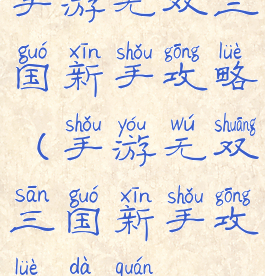 手游无双三
guó xīn shǒu gōng lüè
国新手攻略
shǒu yóu wú shuāng
(手游无双
sān guó xīn shǒu gōng
三国新手攻
lüè dà quán